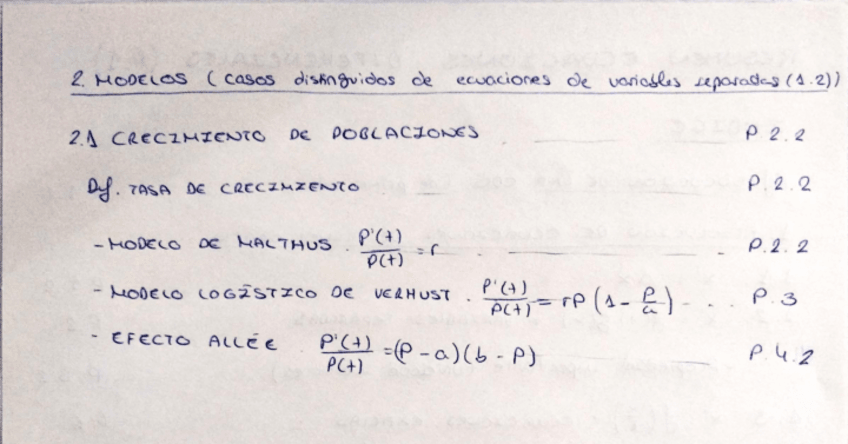 2. MODELOS (casos distinguidos de ecuaciones de variables separadas (1.2))
2.1 CRECIMIENTO DE POBLACIONES P. 2.2
Df. TASA DE CRECIMIENTO P. 2.2
- MODELO DE MALTHUS . P'(t)/P(t) = r P. 2.2
- MODELO LOGÍSTICO DE VERHUST . P'(t)/P(t) = rP (1 - P/a) - .. P. 3
- EFECTO ALLÉE . P'(t)/P(t) = (P - a)(b - P) P. 4.2